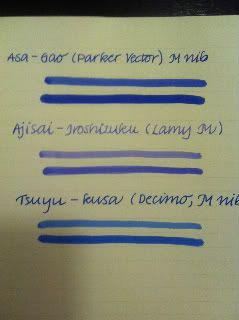 Asa-Gao (Parker Vector) M nib
Ajisai-Iroshizuku (Lamy M)
Tsuyu-kusa (Decimo, M nib